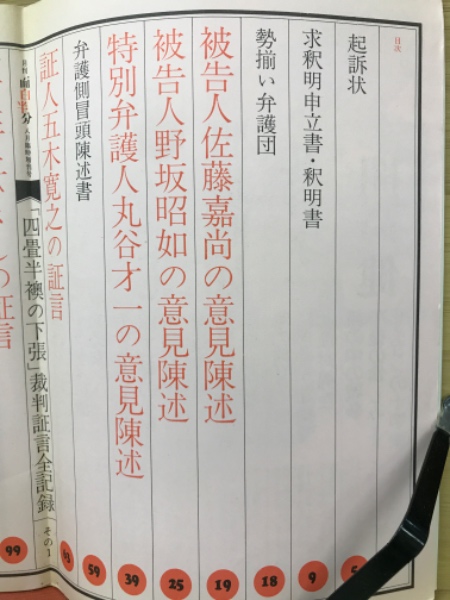 目次
起訴状
5
求釈明申立書・釈明書
9
勢揃い弁護団
18
被告人佐藤嘉尚の意見陳述
19
被告人野坂昭如の意見陳述
25
特別弁護人丸谷才一の意見陳述
39
弁護側冒頭陳述書
59
証人五木寛之の証言
面白半分
「四畳半襖の下張」裁判証言全記録
その1
の証言
99